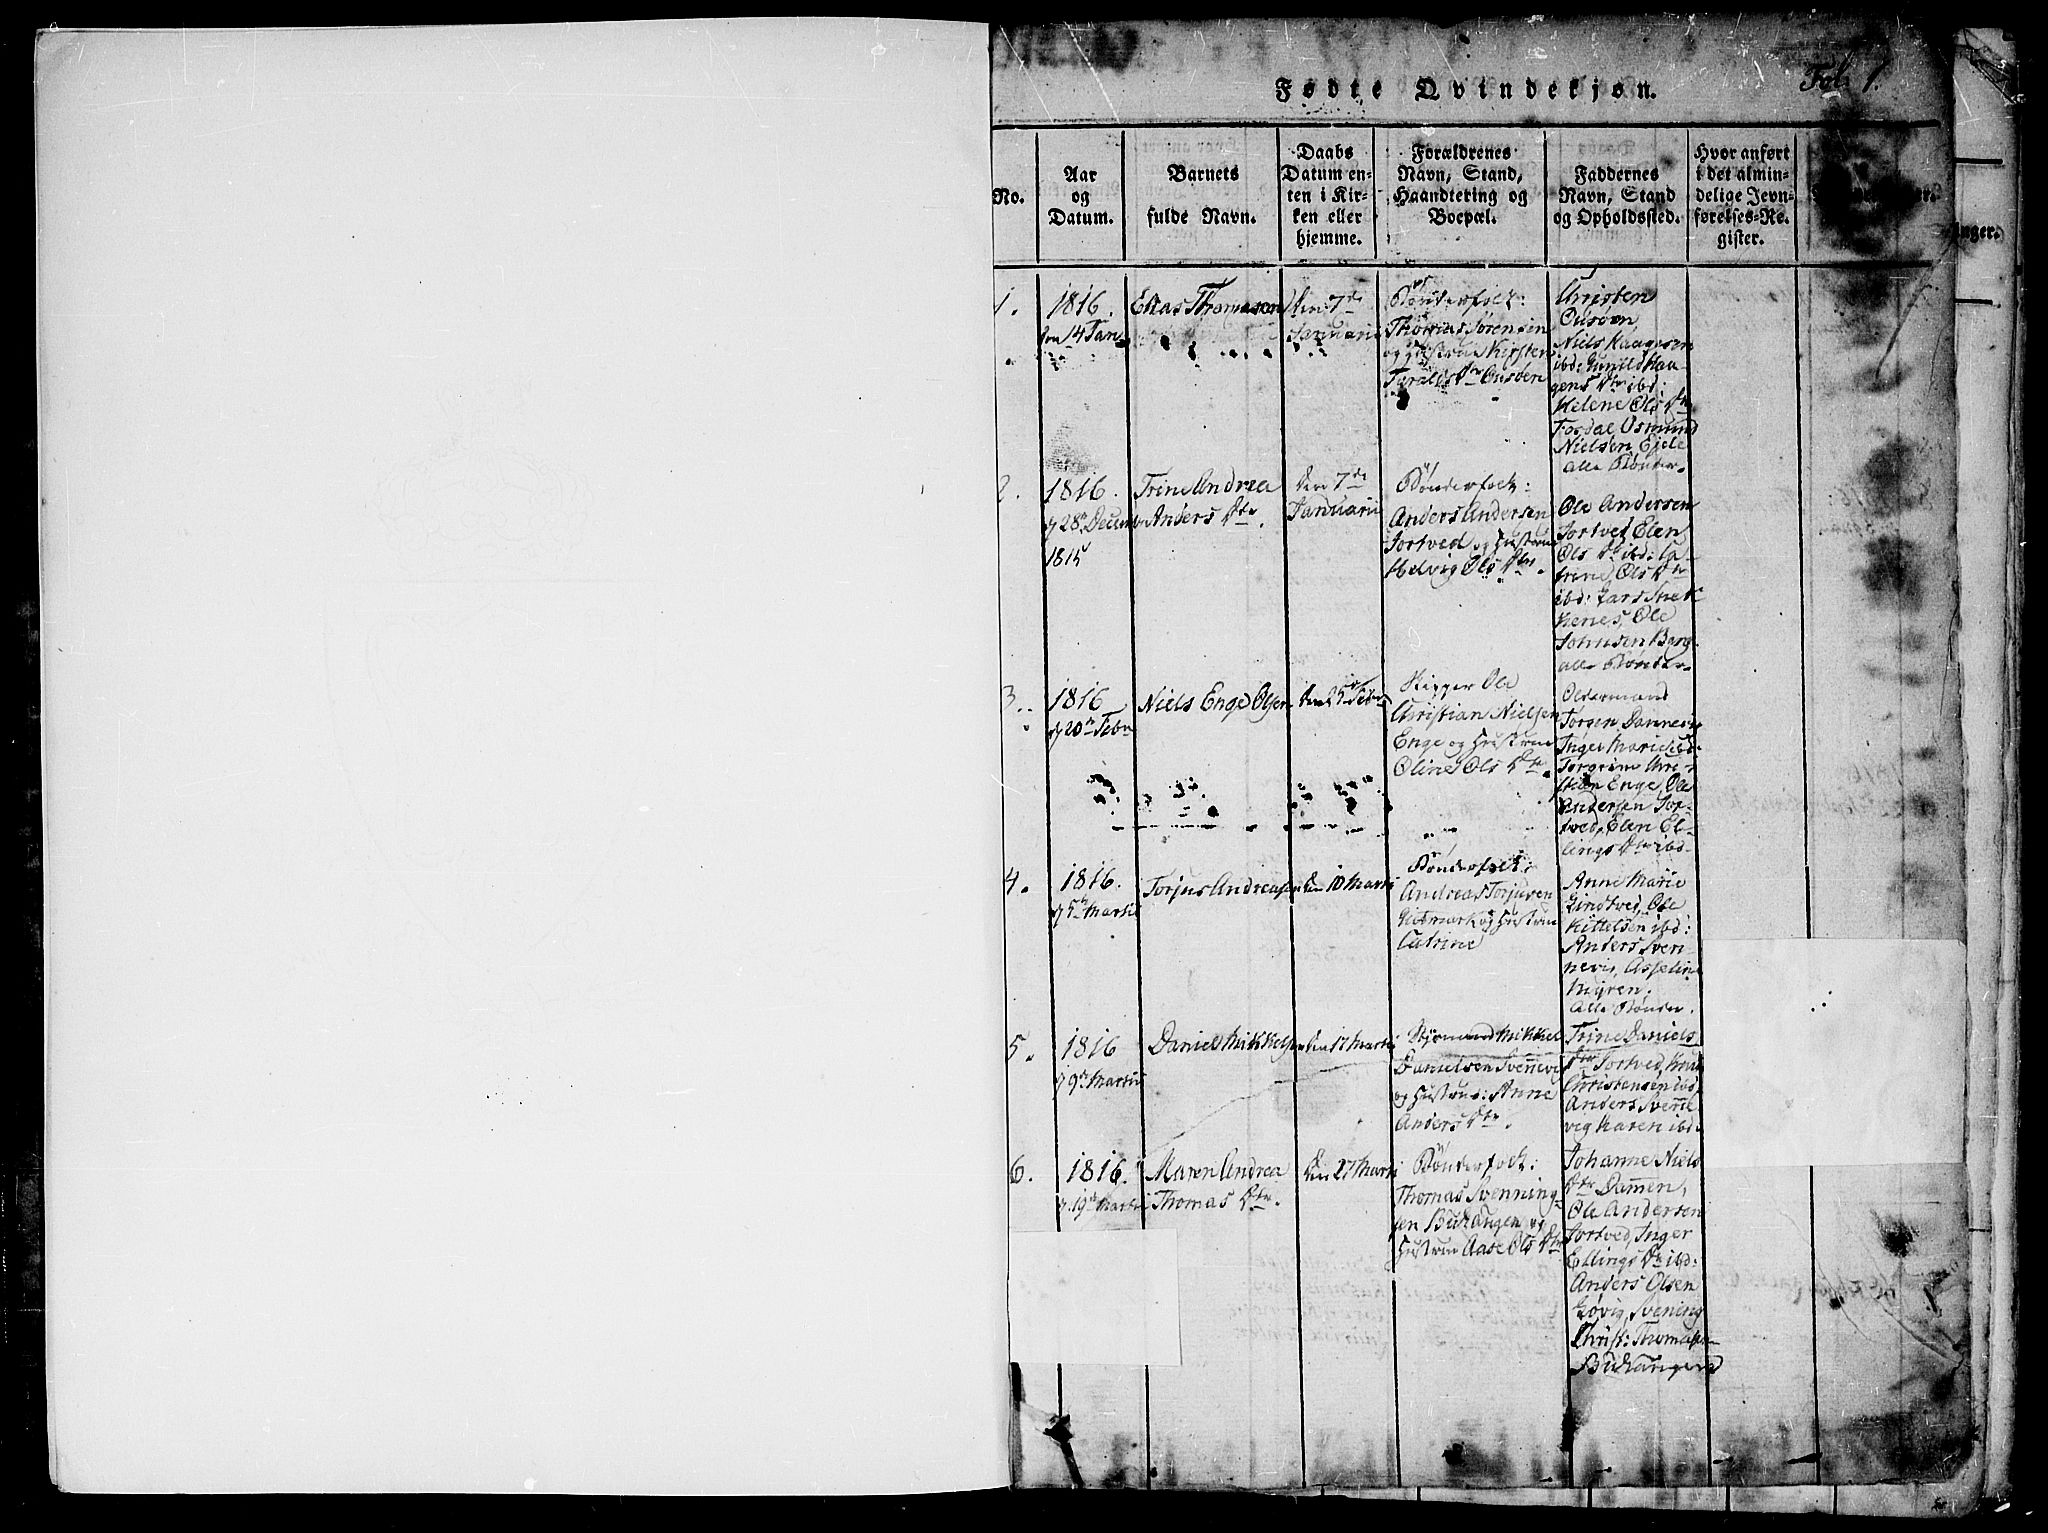 Fol 1.
Fødte Qvindekjøn.
No.
Aar
og
Datum.
Barnets
fulde Navn.
Daabs
Datum en-
ten i Kir-
ken eller
hjemme.
Forældrenes
Navn, Stand,
Haandtering og
Boepæl.
Faddernes
Navn, Stand
og Opholdssted.
Hvor anført
i det almin-
delige Jevn-
førelses-Re-
gister.
1.
1816.
14 Jan
Elias Thomasen
den 7de
Januarii
Bønderfolk:
Thomas Sørensen
og Hustrue Kirsten
Taralds Dtr Ousøen
Christen
Ousøen
Niels Haagensen
ibd: Gunild Haa-
gens Dtr ibd:
Helene Ols Dtr
Fosdal Osmund
Nielsen Ejele
alle Bønder.
2.
1816.
28 Decemb
1815
Trine Andrea
Anders Dtr.
den 7de
Januarii
Bønderfolk:
Anders Andersen
Tortved og Hustrue
Helvig Ols Dtr.
Ole Andersen
Tortved, Elen
Ols Dtr ibd: Ca-
trine Ols Dtr
ibd: Lars Snek
kenes, Ole
Johnsen Barg
alle Bønder.
3.
1816
20 Febr
Niels Enge Olsen
den 25 Febr
Skipper Ole
Christian Nielsen
Enge og Hustrue
Oline Ols Dtr.
Oldermand
Jørgen Dannevig
Inger Marie ibd:
Jørgine Chri-
stian Enge, Ole
Andersen Tor-
tved, Elen El-
lings Dtr ibd.
4.
1816.
5te Martii
Torjus Andreasen
den 10 Marti
Bønderfolk:
Andreas Torjusen
og Hustrue
Catrine
Anne Marie
Lindtved, Ole
Kittelsen ibd:
Anders Sven
nevig, Asseline
Kijren.
Alle Bønder.
5.
1816
9de Martii
Daniel Mikkelsen
den 17 Marti
Sjømand Mikkel
Danielsen Svennevig
og Hustrue: Anne
Anders Dtr.
Trine Daniels
Dtr Tortved, Knud
Christensen ibd
Anders Svenne
vig Karen ibd.
6.
1816.
19de Martii
Maren Andrea
Thomas Dtr.
den 27 Marti
Bønderfolk:
Thomas Svenning-
sen Bukangen og
Hustrue Aase Ols Dtr
Johanne Niels
Dtr Dannen,
Ole Andersen
Tortved, Inger
Ellings Dtr ibd:
Anders Olsen
Gøvig, Svening
Christ: Thomasen
Bukangen